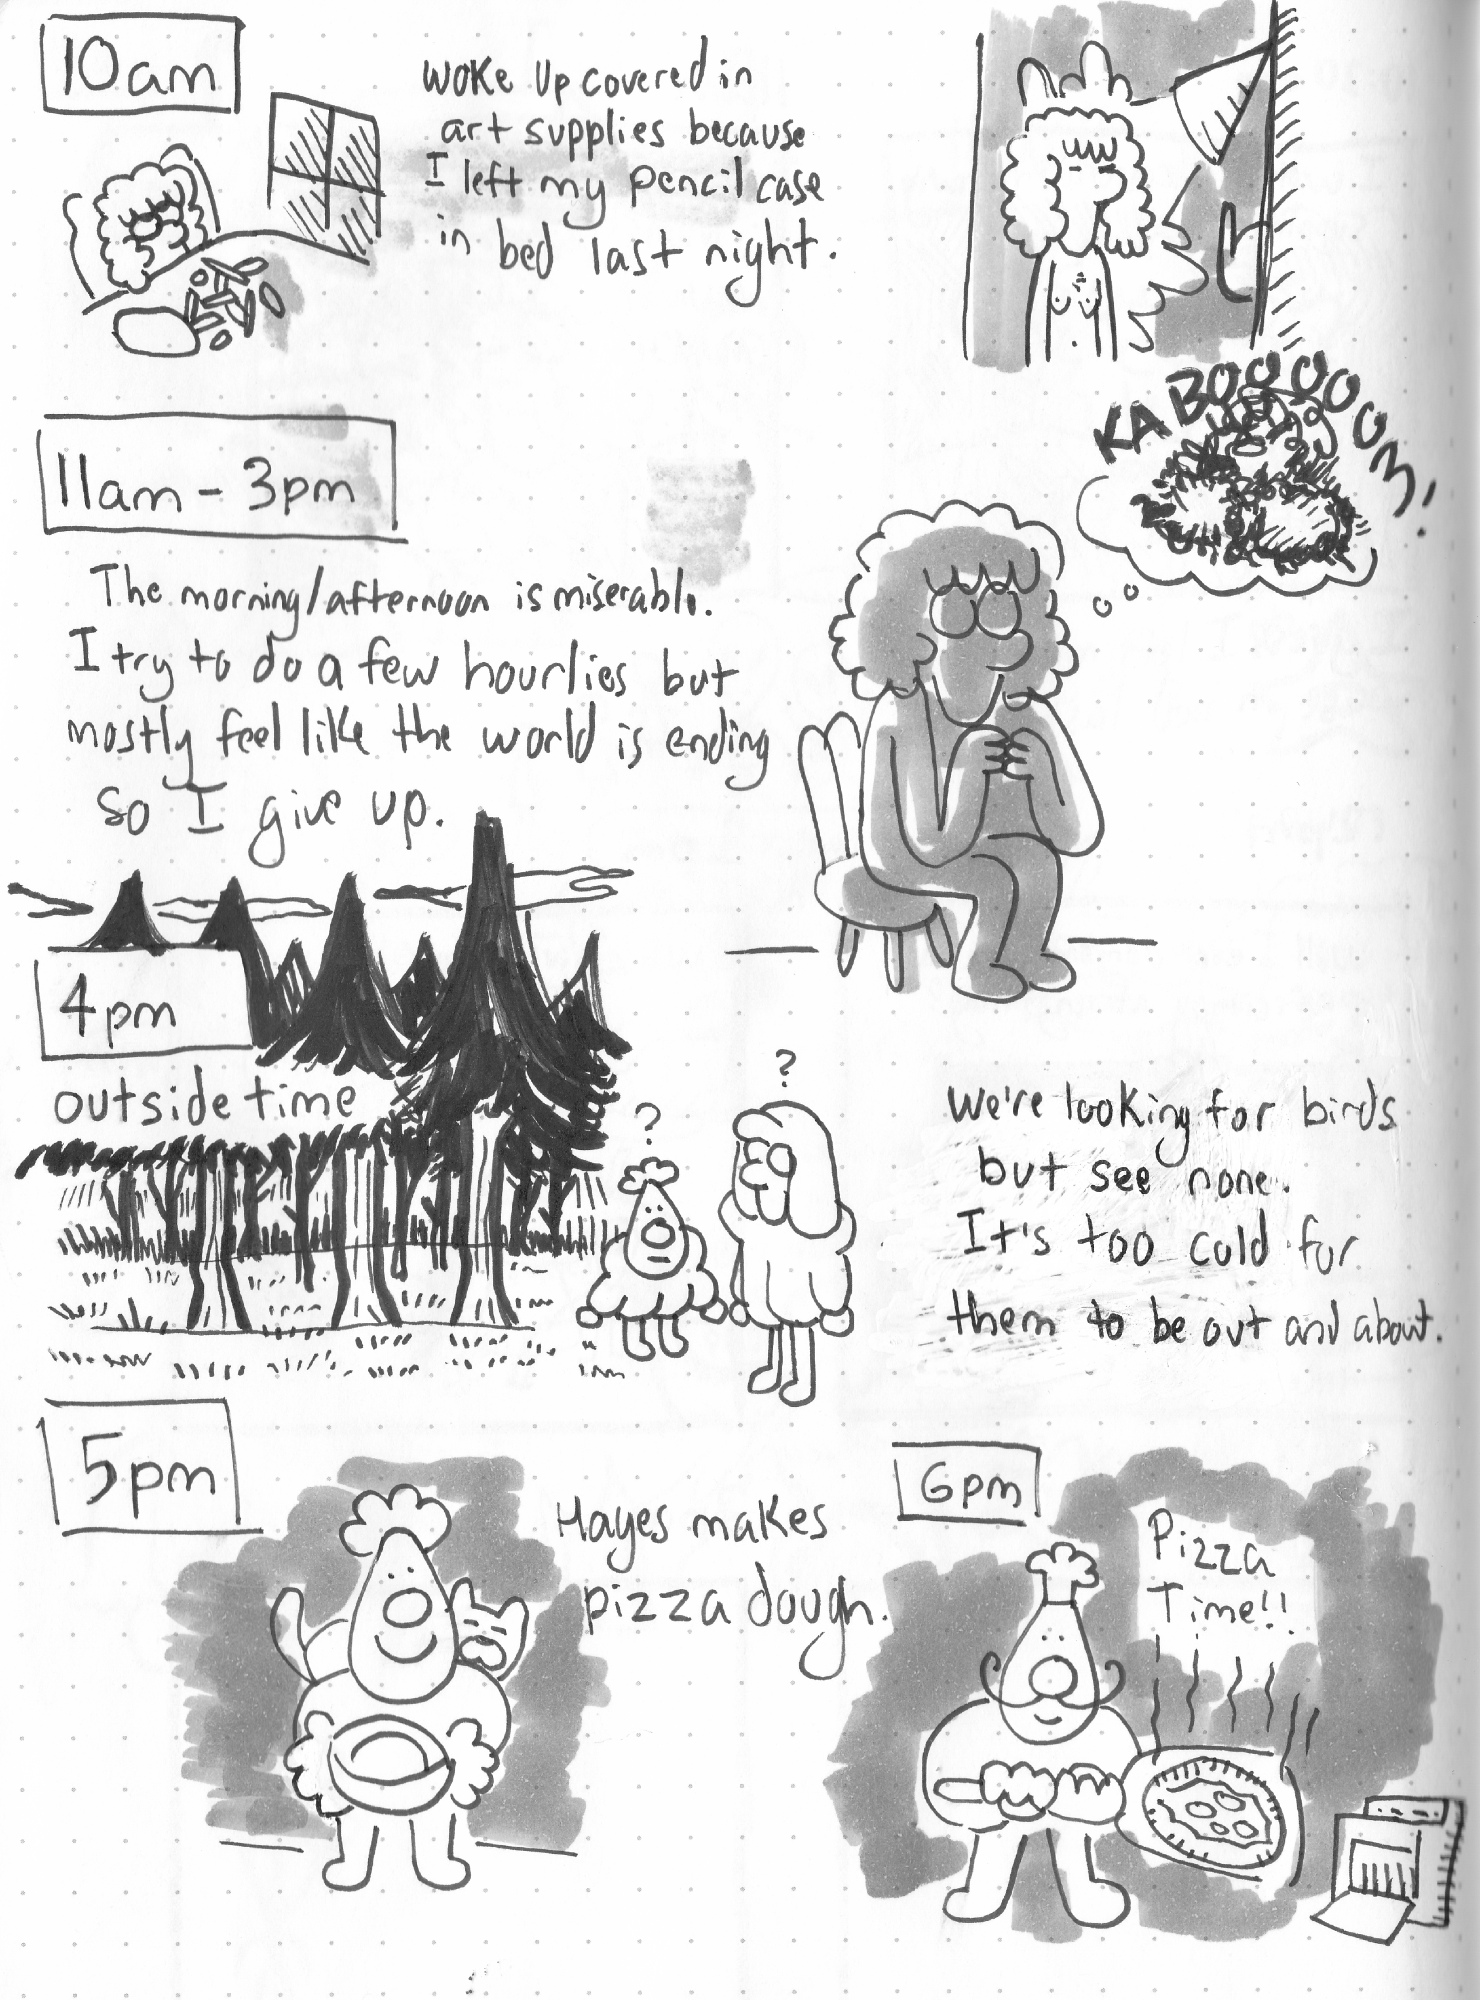 10am
Woke up covered in
art supplies because
I left my pencil case
in bed last night.
11am - 3pm
KABOOOOOM!
The morning/afternoon is miserable.
I try to do a few hourlies but
mostly feel like the world is ending
so I give up.
4pm
outside time
?
?
We're looking for birds
but see none.
It's too cold for
them to be out and about.
5pm
Hayes makes
pizza dough.
6pm
Pizza
Time!!